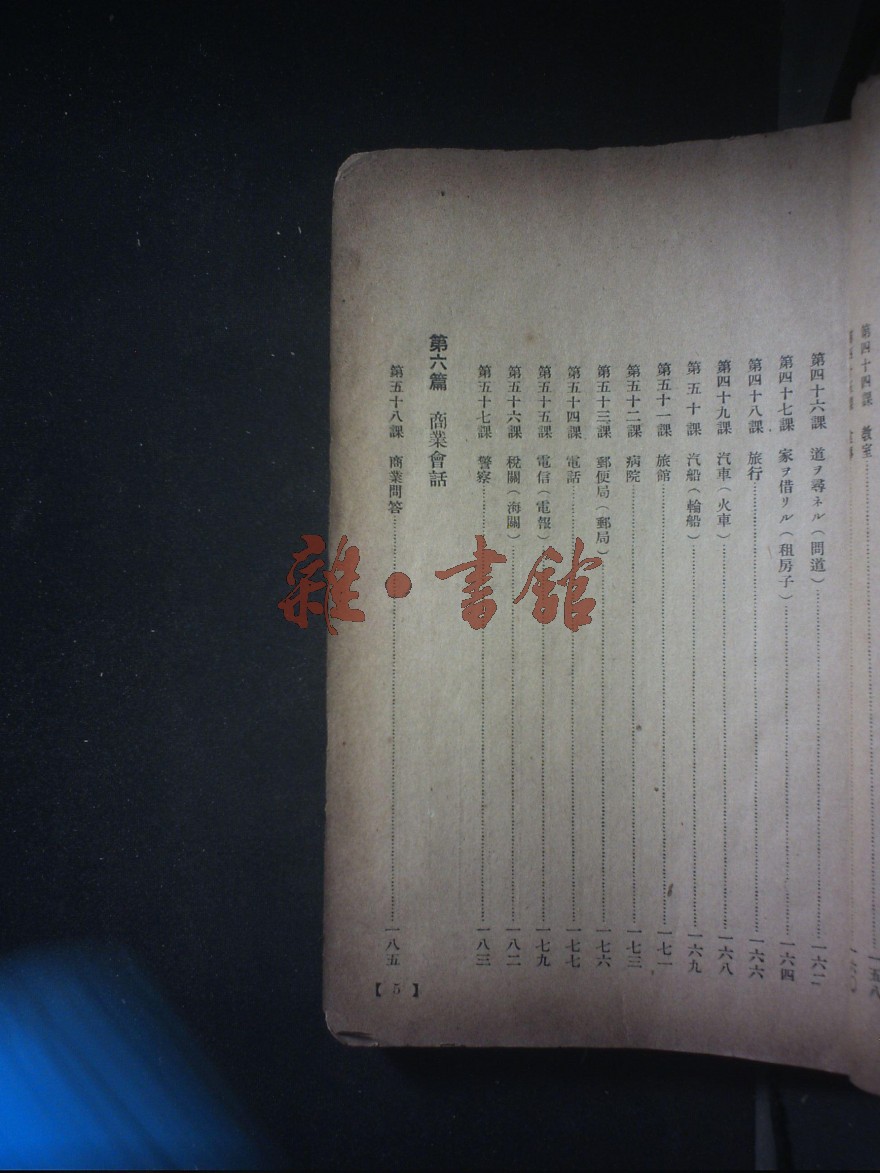 第四十四課 教室……一五八
第四十六課 道ヲ尋ネル(問道)……一六二
第四十七課 家ヲ借リル(租房子)……一六四
第四十八課 旅行……一六六
第四十九課 汽車(火車)……一六八
第五十課 汽船(輪船)……一六九
第五十一課 旅館……一七一
第五十二課 病院……一七三
第五十三課 郵便局(郵局)……一七六
第五十四課 電話……一七七
第五十五課 電信(電報)……一七九
第五十六課 稅關(海關)……一八二
第五十七課 警察……一八三
第六篇 商業會話
第五十八課 商業問答……一八五
【5】
雜·書館